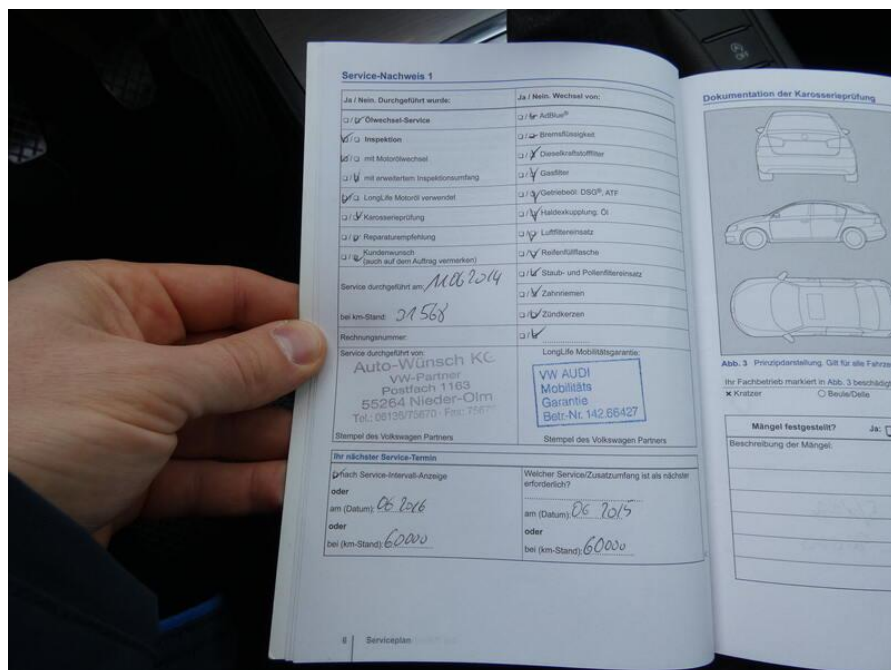 Service-Nachweis 1
Ja / Nein. Durchgeführt wurde:
Ölwechsel-Service
Inspektion
mit Motorölwechsel
mit erweitertem Inspektionsumfang
LongLife Motoröl verwendet
Karosserieprüfung
Reparaturempfehlung
Kundenwunsch
(auch auf dem Auftrag vermerken)
Service durchgeführt am: 11.06 2014
bei km-Stand: 31568
Rechnungsnummer:
Service durchgeführt von:
Auto-Wünsch KG
VW-Partner
Postfach 1163
55264 Nieder-Olm
Tel.: 06136/75670 - Fax:
Stempel des Volkswagen Partners
Ja / Nein. Wechsel von:
AdBlue®
Bremsflüssigkeit
Dieselkraftstofffilter
Gasfilter
Getriebeöl: DSG®, ATF
Haldexkupplung: Öl
Luftfiltereinsatz
Reifenfüllflasche
Staub- und Pollenfiltereinsatz
Zahnriemen
Zündkerzen
LongLife Mobilitätsgarantie:
VW AUDI
Mobilitäts
Garantie
Betr-Nr. 142.66427
Stempel des Volkswagen Partners
Ihr nächster Service-Termin
nach Service-Intervall-Anzeige
oder
am (Datum): 06 2016
oder
bei (km-Stand): 60000
Welcher Service/Zusatzumfang ist als nächster
erforderlich?
am (Datum): 06 2015
oder
bei (km-Stand): 60000
8 Serviceplan
Dokumentation der Karosserieprüfung
Abb. 3 Prinzipdarstellung. Gilt für alle
Ihr Fachbetrieb markiert in Abb. 3
× Kratzer ○ Beule/Delle
Mängel festgestellt? Ja:
Beschreibung der Mängel:
OFF